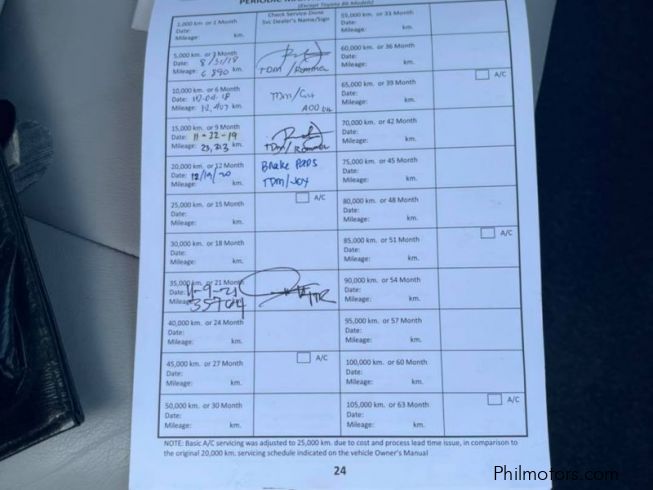 (Except Toyota 86 Models)
Check Service Done
Svc Dealer's Name/Sign
1,000 km. or 1 Month
Date:
Mileage: km.
5,000 km. or 3 Month
Date: 8/31/18
Mileage: 6 890 km.
TDM /Rommel
10,000 km. or 6 Month
Date:
Mileage: 10,407 km.
15,000 km. or 9 Month
Date: 11-22-19
Mileage: 23,213 km.
TDM/Rommel
20,000 km. or 12 Month
Date: 12/19/20
Mileage: km.
Brake PADS
TDM/JOY
25,000 km. or 15 Month
Date:
Mileage: km.
A/C
30,000 km. or 18 Month
Date:
Mileage: km.
35,000 km. or 21 Month
Date: 11-9-21
Mileage: 35704
40,000 km. or 24 Month
Date:
Mileage: km.
45,000 km. or 27 Month
Date:
Mileage: km.
A/C
50,000 km. or 30 Month
Date:
Mileage: km.
55,000 km. or 33 Month
Date:
Mileage: km.
60,000 km. or 36 Month
Date:
Mileage: km.
65,000 km. or 39 Month
Date:
Mileage: km.
A/C
70,000 km. or 42 Month
Date:
Mileage: km.
75,000 km. or 45 Month
Date:
Mileage: km.
80,000 km. or 48 Month
Date:
Mileage: km.
85,000 km. or 51 Month
Date:
Mileage: km.
A/C
90,000 km. or 54 Month
Date:
Mileage: km.
95,000 km. or 57 Month
Date:
Mileage: km.
100,000 km. or 60 Month
Date:
Mileage: km.
105,000 km. or 63 Month
Date:
Mileage: km.
A/C
NOTE: Basic A/C servicing was adjusted to 25,000 km. due to cost and process lead time issue, in comparison to
the original 20,000 km. servicing schedule indicated on the vehicle Owner's Manual
24
Philmotors.com